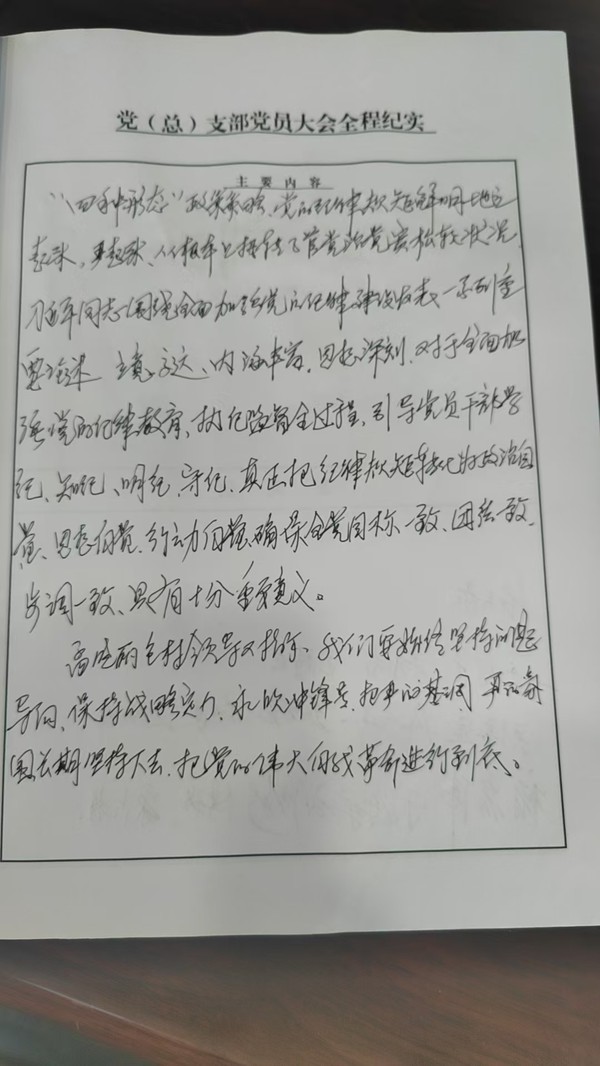 党（总）支部党员大会全程纪实
主要内容
“四种形态”政策策略，党的纪律规矩鲜明地立
起来、严起来，从根本上扭转了管党治党宽松软状况。
习近平同志围绕全面加强党的纪律建设发表一系列重
要论述 立意高远、内涵丰富、思想深刻，对于全面加
强党的纪律教育、执纪监督全过程，引导党员干部学
纪、知纪、明纪、守纪，真正把纪律规矩转化为政治自
觉、思想自觉、行动自觉，确保全党目标一致、团结一致、
步调一致，具有十分重要意义。
支村领导又指示，我们要始终坚持问题
导向，保持战略定力，永吹冲锋号，把严的基调
长期坚持下去，把党的伟大自我革命进行到底。